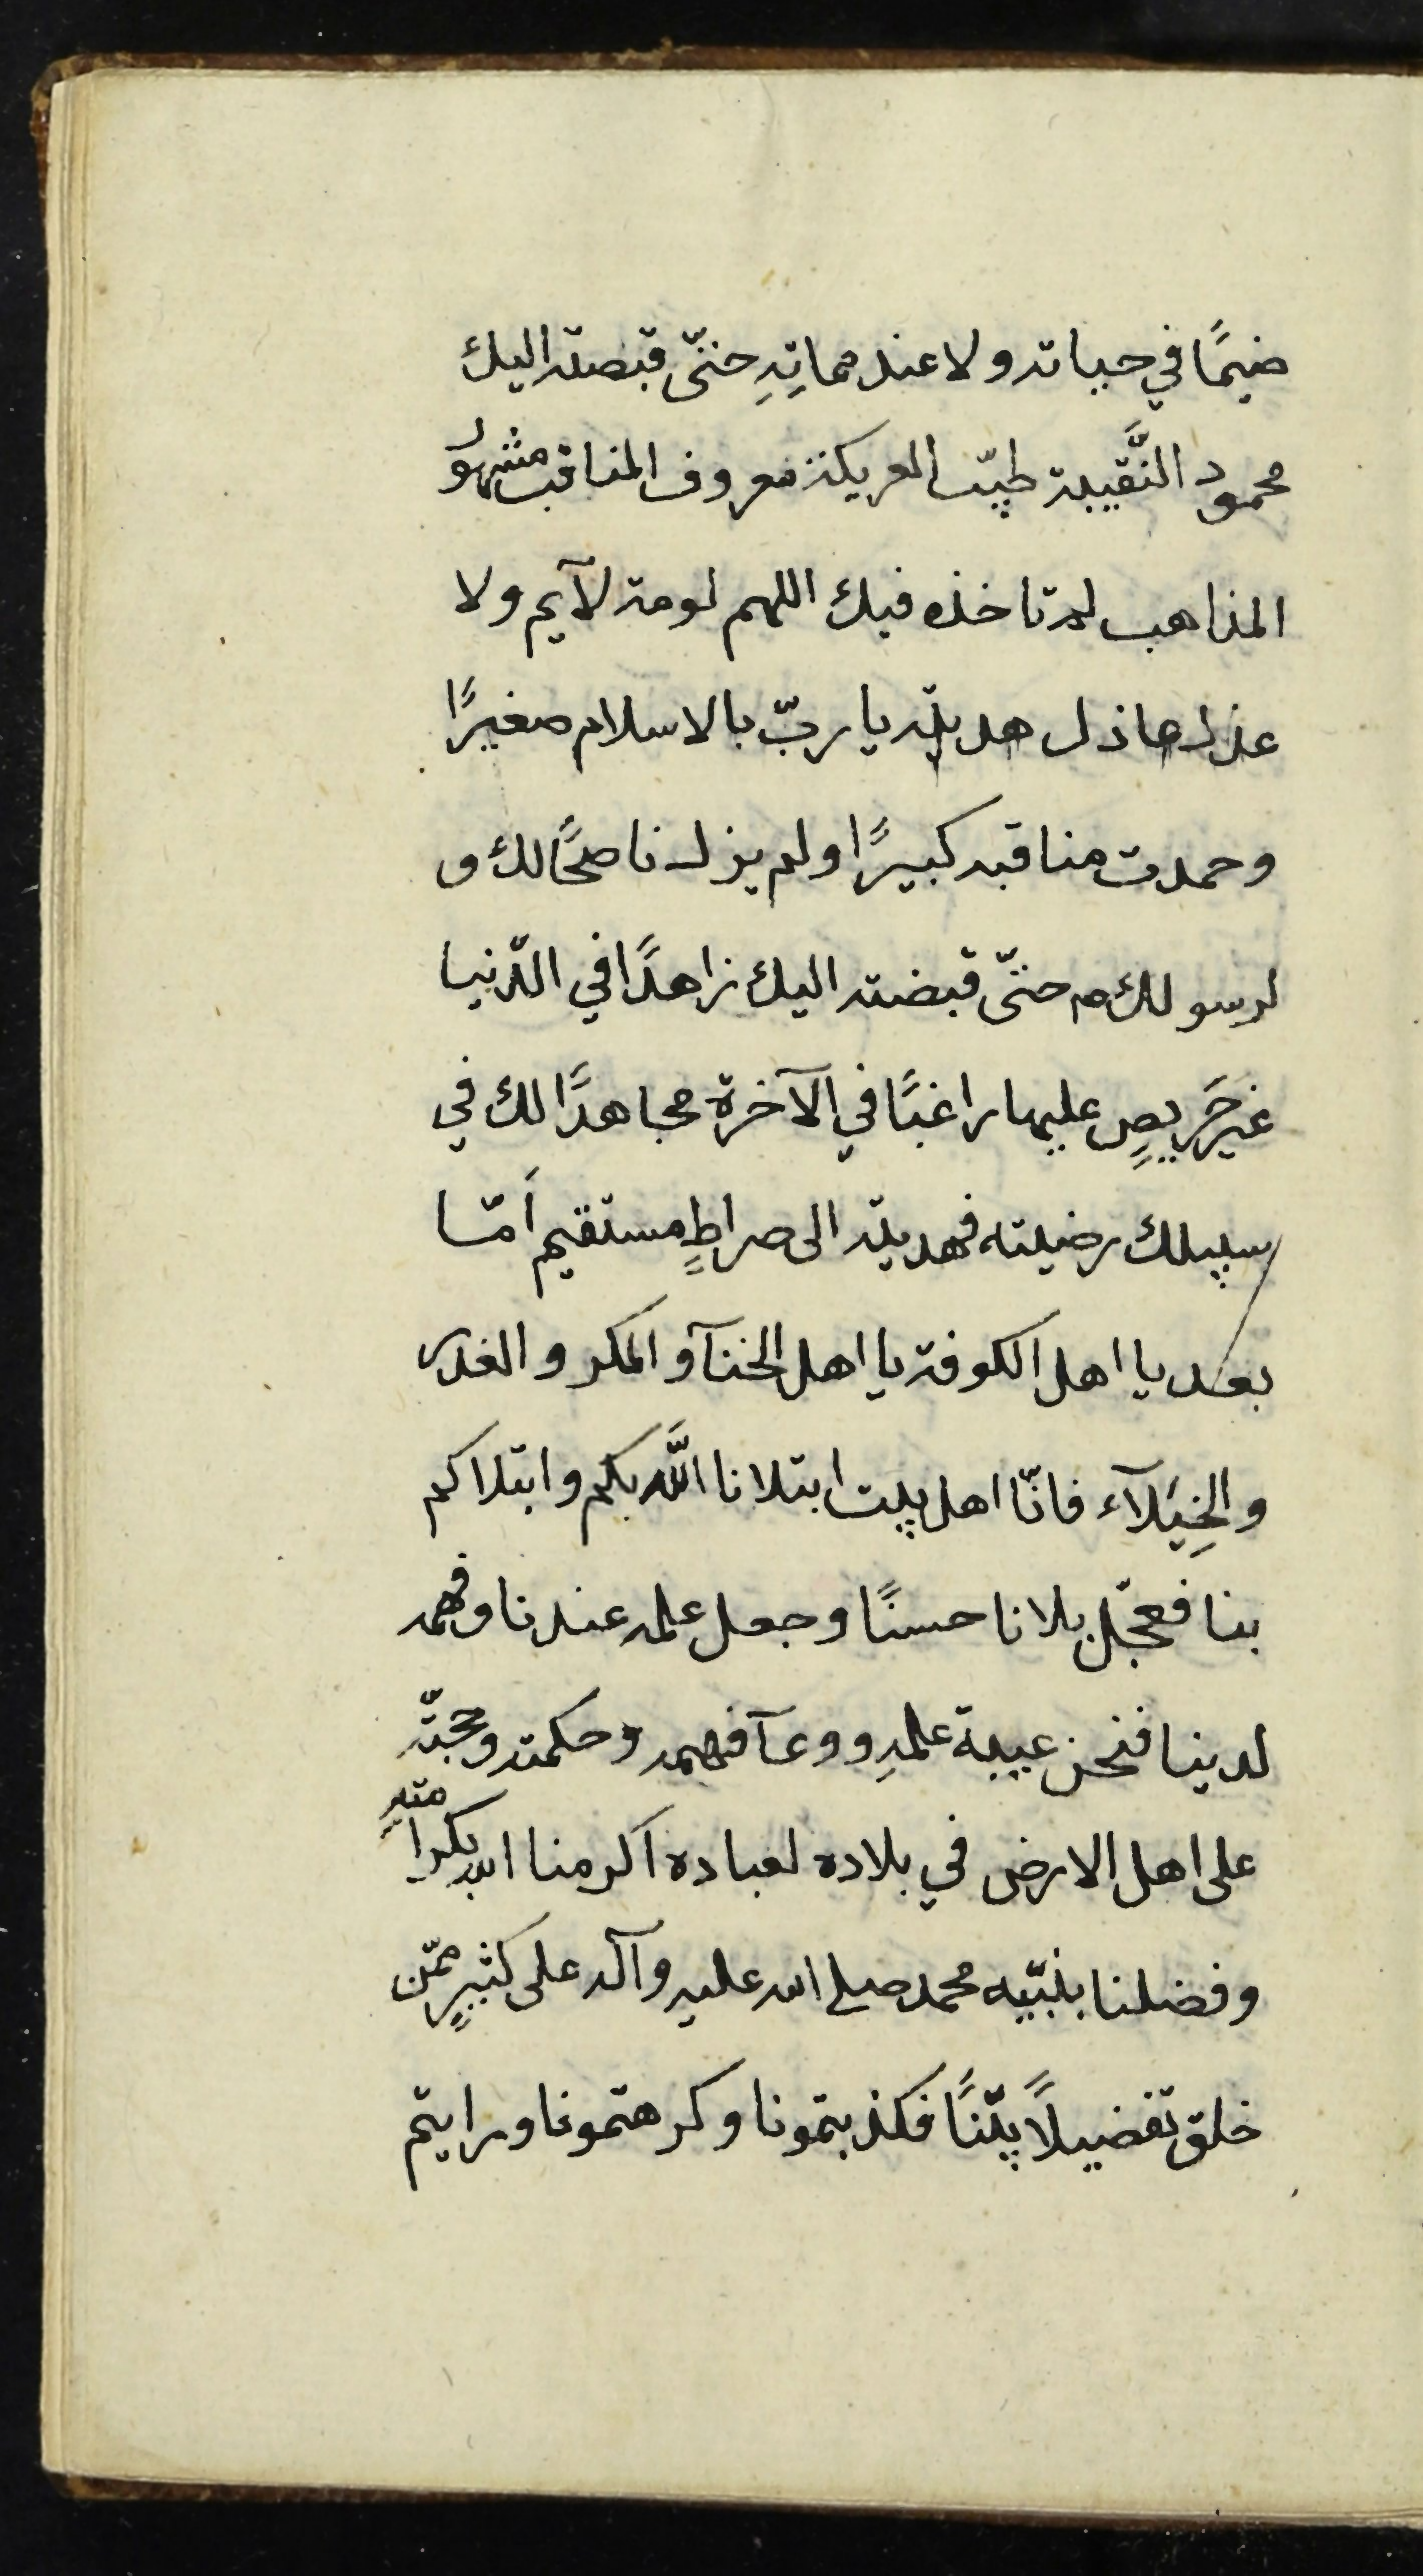 ضيمًا في حياته ولا عند مماتِهِ حتّى قبضته اليك
محمود النَّقيبة طيّب العريكة معروف المناقب مشهور
المذاهب لم تاخذه فيك اللهم لومة لآيم ولا
عذل عاذل هديته يا ربّ بالاسلام صغيرًا
وحمدت مناقبه كبيرًا ولم يزل ناصحًا لك و
لرسولك ص حتّى قبضته اليك زاهدًا في الدّنيا
غير حَريصٍ عليها راغبًا في الآخرة مجاهدًا لك في
سبيلك رضيته فهديته الى صراطٍ مستقيم اَمّا
بعد يا اهل الكوفة يا اهل الختآ والمكر والغدر
والخِيَلآء فانّا اهل بيت ابتلانا اللَّه بكم وابتلاكم
بنا فجعل بلانا حسنًا وجعل علمه عندنا وفهمه
لدينا فنحن عيبة علمهِ ووعآ فهمه وحكمته وحجّته
على اهل الارض في بلاده لعباده اكرمنا الله بكرامتهِ
وفضلنا بنبيّه محمد صلى الله عليه وآله على كثيرٍ ممّن
خلق تفضيلاً بيّنًا فكذبتمونا وكرهتمونا ورايتم